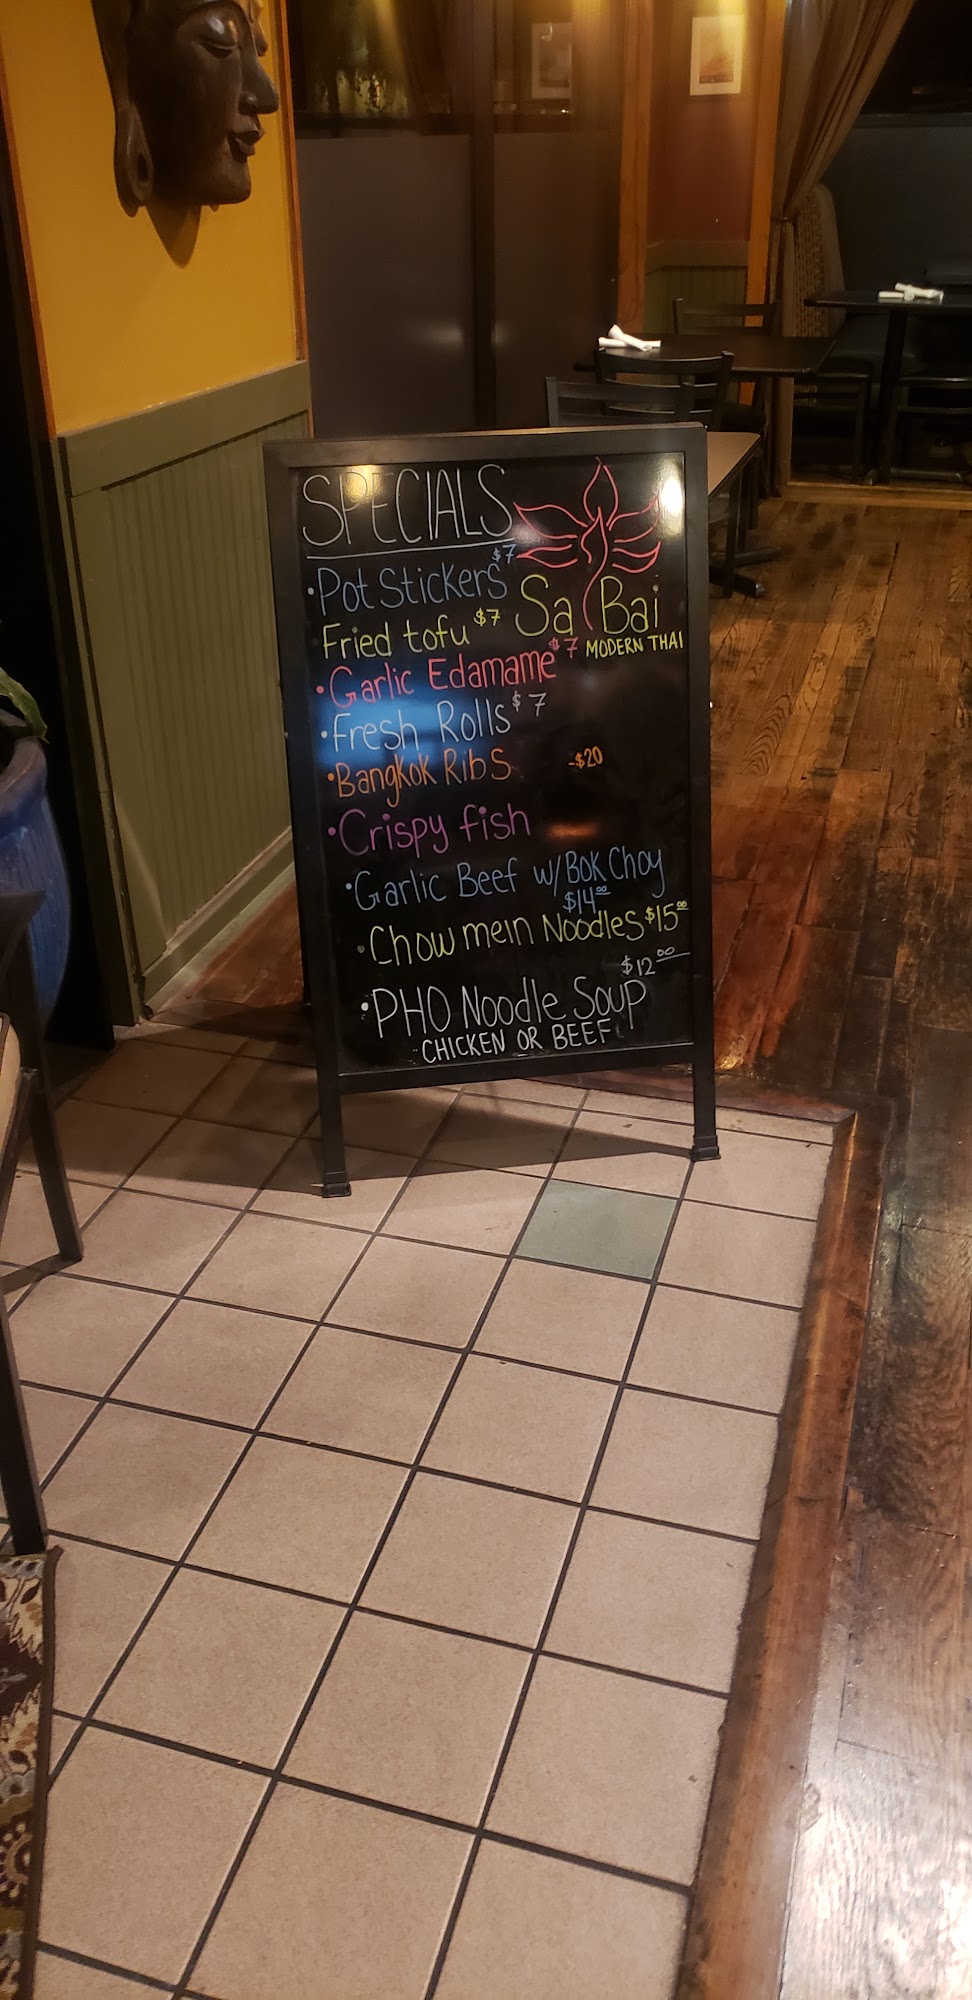 SPECIALS
• Pot Stickers $7
Fried tofu $7
Sa Bai
MODERN THAI
• Garlic Edamame $7
• Fresh Rolls $7
• Bangkok Ribs -$20
• Crispy fish
• Garlic Beef w/ Bok Choy
$14.00
• Chow mein Noodles $15.00
$12.00
• PHO Noodle Soup
CHICKEN OR BEEF